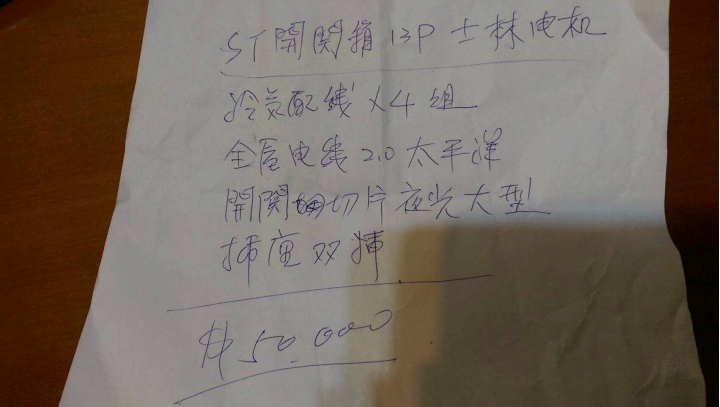 ST開関箱 13P 士林电机
冷気配线 X4組
全室电线 2.0 太平洋
開関切片夜光大型
插座双插
$50.000